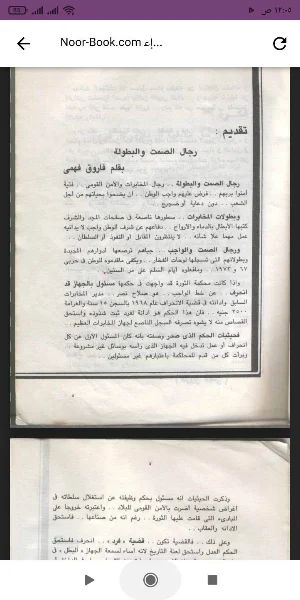 ١٢:٠٥ ص
Noor-Book.com إء...
تقديم :
رجال الصمت والبطولة
بقلم فاروق فهمى
رجال الصمت والبطولة .. رجال المخابرات والأمن القومى .. فتية
آمنوا بربهم .. فرض عليهم واجب الوطن .. ان يضحوا بحياتهم من أجل
الشعب .. دون دعاية أو ضجيج ..
وبطولات المخابرات .. سطورها ناصعة فى صفحات المجد والشرف
كتبها الأبطال بالدماء والأرواح .. دفاعهم عن شرف الوطن واجب لا يدانيه
عمل مهما علا شأنه .. لا ينتظرون المقابل أو النفوذ أو السلطان ..
ورجال الصمت والواجب .. حياتهم ترصعها أدوارهم المجيدة
وبطولاتهم التى تسجلها لوحات الفخار .. ويكفى ماقدموه للوطن فى حربى
٦٧ و ١٩٧٣ .. ومافعلوه أيام السلم على مر السنين.
واذا كانت محكمة الثورة قد واجهت فى حكمها مسئول بالجهاز قد
انحرف .. عن خط الواجب .. هو صلاح نصر .. مدير المخابرات
السابق وأدانته فى قضية الانحراف عام ١٩٦٨ بالسجن ٢٥ سنة والغرامة
٢٥٠٠ جنيه .. فان هذا الحكم هو ادانة لفرد ثبت شذوذه واستحق
القصاص منه لا يشوه تصرفه السجل الناصع لجهاز المخابرات العظيم ..
فحيثيات الحكم الذى صدر وصفته بأنه كان المسئول الأول عن كل
انحراف أو عمل تدخل فيه الجهاز الذى رأسه بوسائل غير مشروعة ..
وبرأت كل من قدم للمحاكمة باعتبارهم غير مسئولين ..
وذكرت الحيثيات انه مسئول بحكم وظيفته عن استغلال سلطاته فى
اغراض شخصية أضرت بالأمن القومى للبلاد .. واعتبرته خروجا على
المبادىء التى قامت عليها الثورة .. رغم انه من صناعها .. فاستحق
الادانة والعقاب ..
وعلى ذلك .. فالقضية تكون .. قضية « فرد » .. انحرف فاستحق
الحكم العدل واستحق لعنة التاريخ لأنه أساء لسمعة الجهاز « البطل » فى